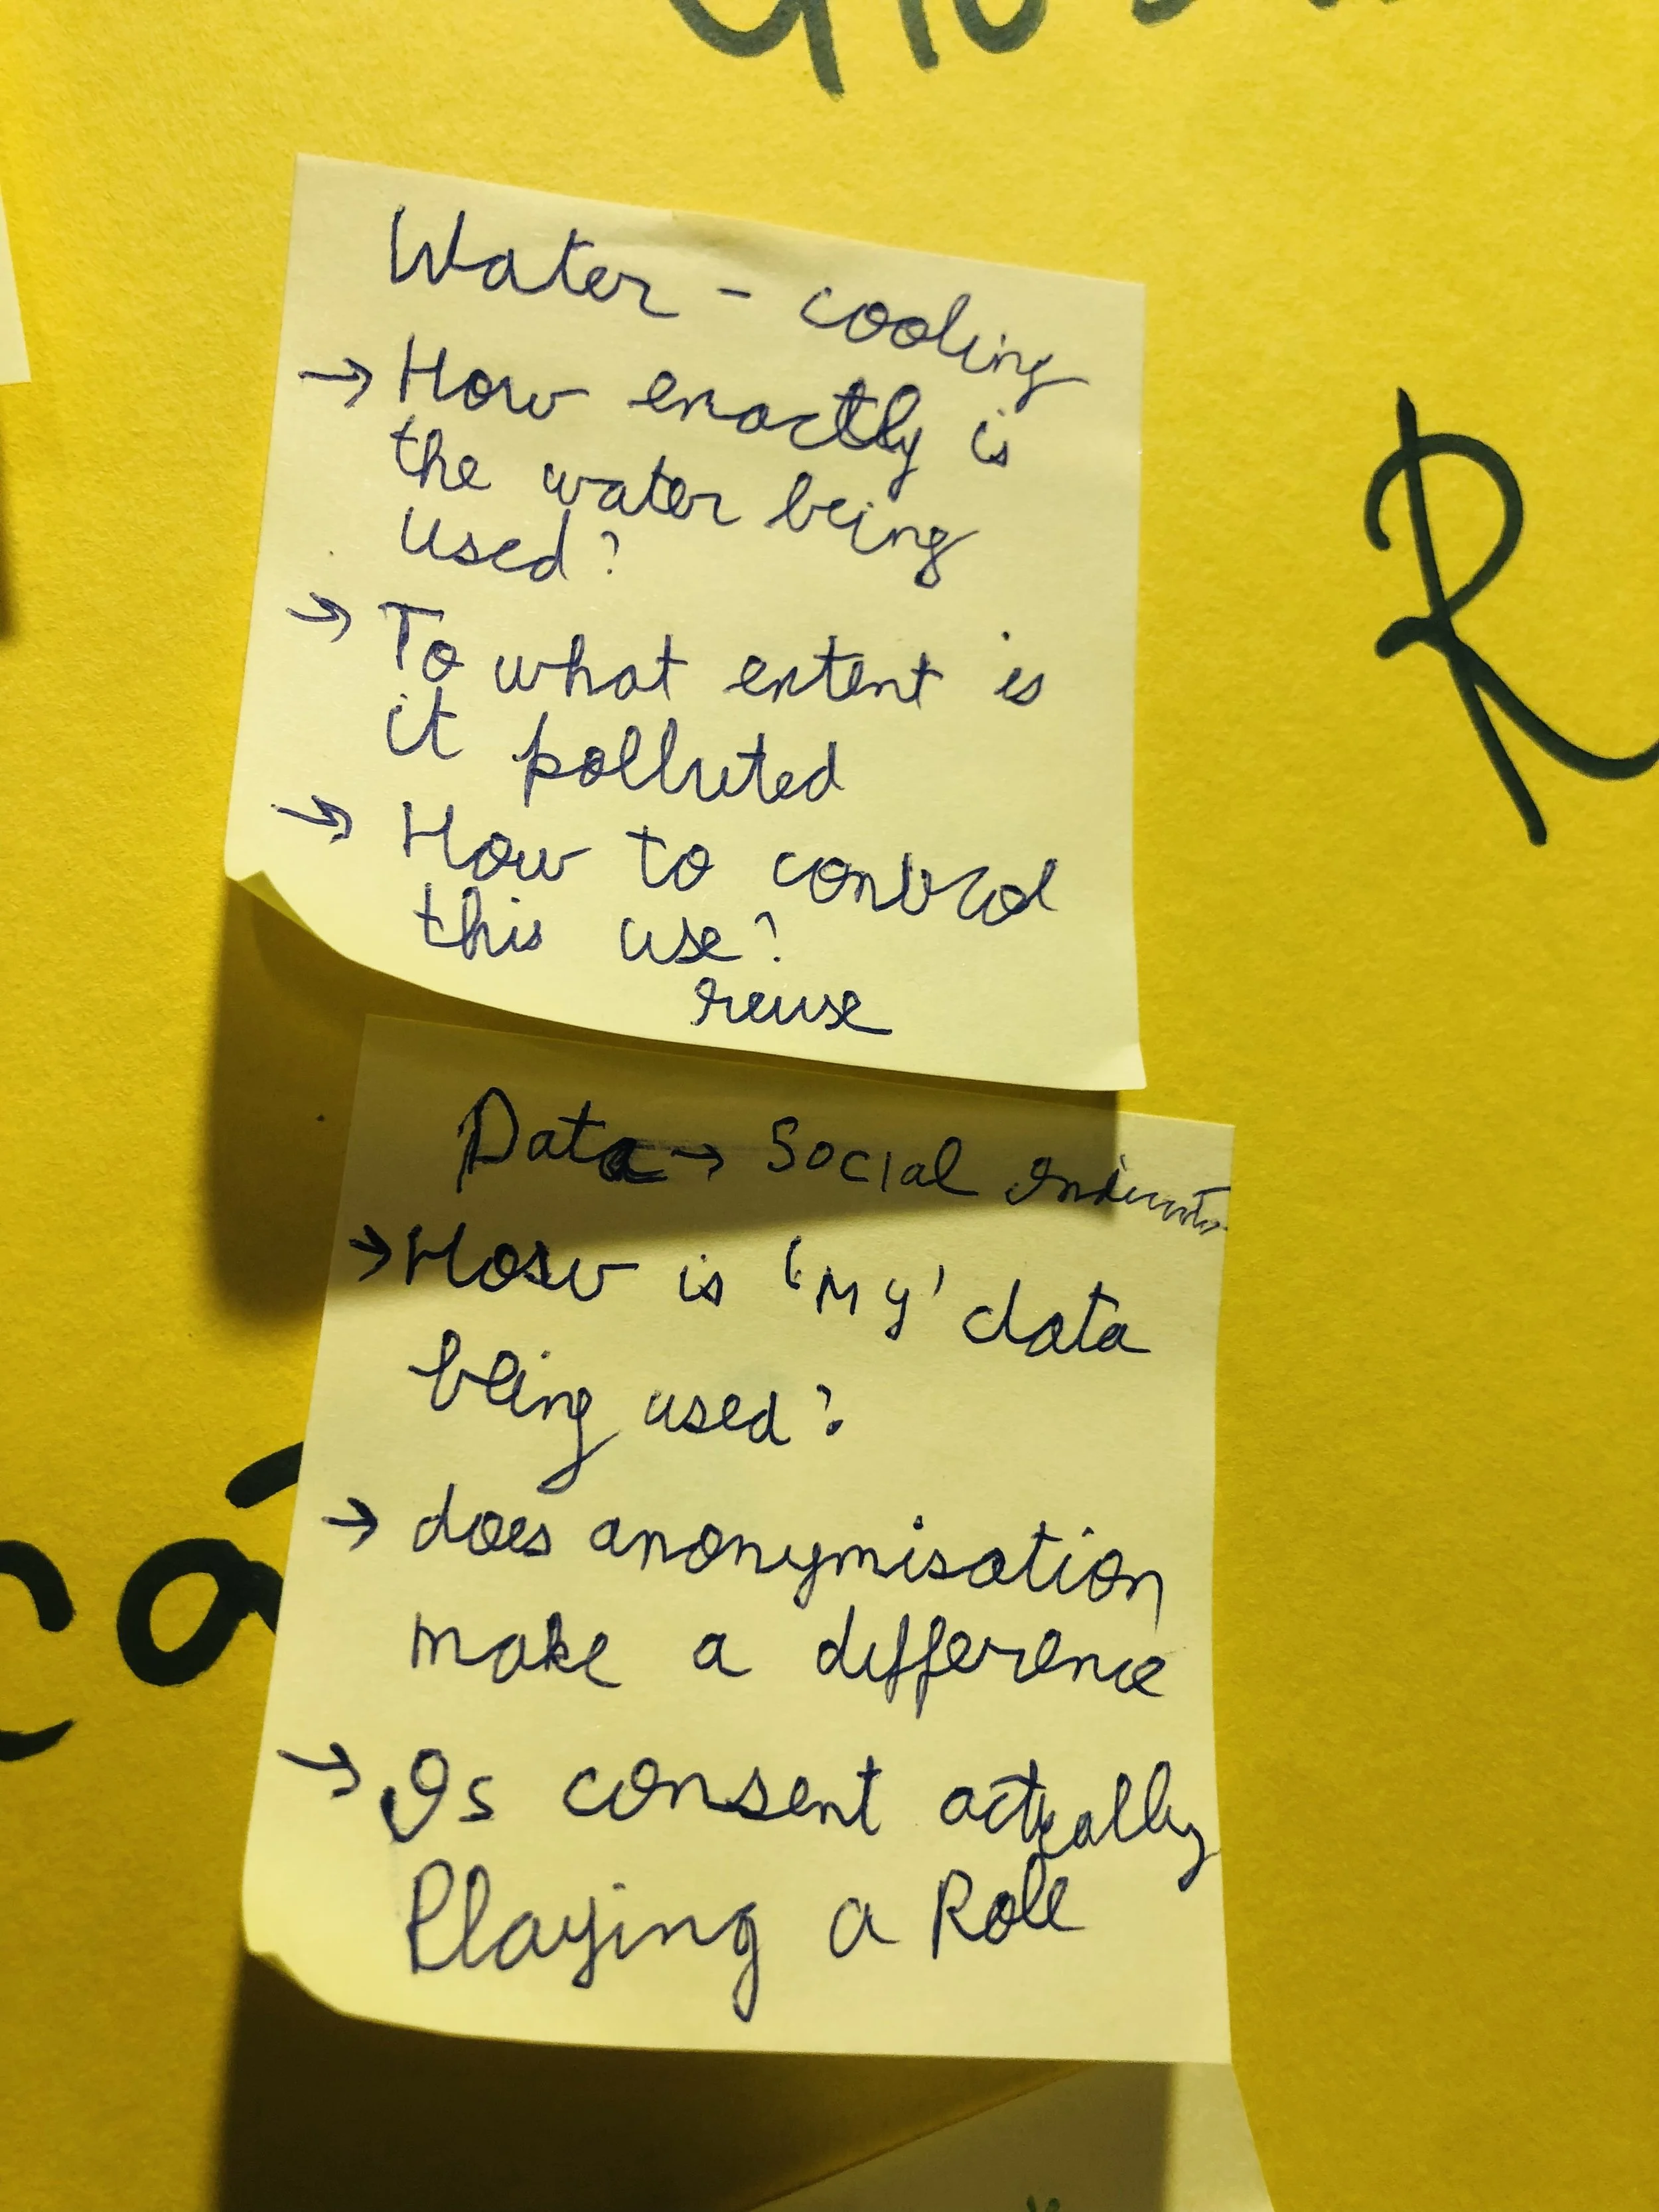 Water - cooling
→ How exactly is
the water being
used?
→ To what extent is
it polluted
→ How to control
this use?
reuse
Data → Social
→ How is 'My' data
being used?
→ does anonymisation
make a difference
→ Is consent actually
Playing a Role
R
ca